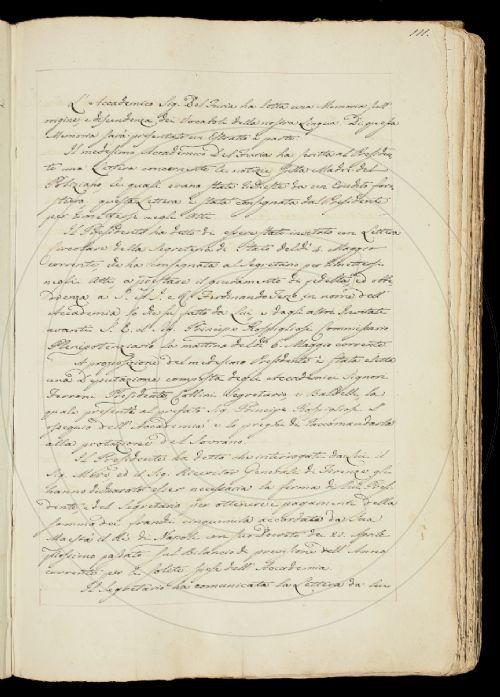 111.
L'Accademico Sig. Del Furia ha letta una Memoria sull'
origine, e dipendenza dei Vocaboli della nostra Lingua. Di questa
Memoria sarà presentato un Estratto a parte.
Il medesimo Accademico Del Furia ha scritta al Presiden-
te una Lettera concernente le notizie della Madre del
Poliziano le quali erano state richieste da un Erudito fore-
stiero, questa Lettera è stata consegnata dal Presidente
per inserirsi negli Atti.
Il Presidente ha detto di essere stato invitato con Lettera
Circolare della Segreteria di Stato del dì 4. Maggio
corrente, che ha consegnata al Segretario per inserirsi
negli Atti a prestare il giuramento di fedeltà, ed obbe-
dienza a S. A. I. e R. Ferdinando Terzo in nome dell'
Accademia lo che fu fatto da Lui, e dagli altri Invitati
avanti S. E. il Sig. Principe Rospigliosi Commissario
Plenipotenziario la mattina del dì 6. Maggio corrente.
A proposizione del medesimo Presidente è stata eletta
una Deputazione composta degli Accademici Signori
Ferroni Presidente, Collini Segretario, e Baldelli, la
quale presenti al prefato Sig. Principe Rospigliosi l'
ossequio dell'Accademia e lo preghi di raccomandarla
alla protezione del Sovrano.
Il Presidente ha detto che interrogati da lui il
Sig. Maire ed il Sig. Ricevitor Generale di Firenze gli
hanno dichiarato esser necessaria la firma di lui Presi-
dente, e del Segretario per ottenere il pagamento della
somma dei franchi cinquemila accordata da Sua
Maestà il Re di Napoli con suo Decreto de' 21. Aprile
prossimo passato sul Bilancio di previsione dell'Anno
corrente per le solite spese dell'Accademia.
Il Segretario ha comunicata la Lettera da lui